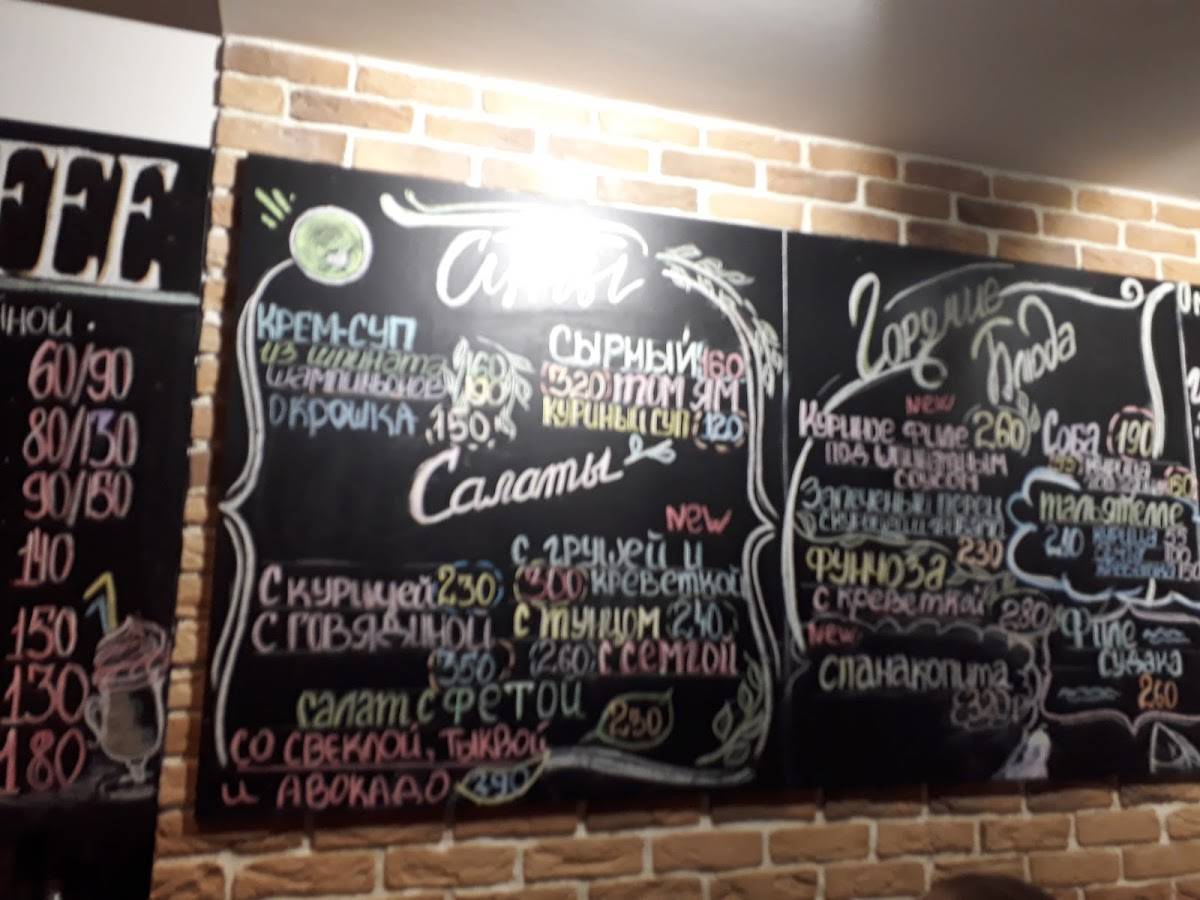 FEE
60/90
80/130
90/150
140
150
130
180
Супы
КРЕМ-СУП
ИЗ ШПИНАТА 160
ШАМПИНЬОНОВ 190
ОКРОШКА 150
СЫРНЫЙ 160
320 ТОМ ЯМ
КУРИНЫЙ СУП 120
Салаты
NEW
С КУРИЦЕЙ 230
С ГОВЯДИНОЙ
350
С ГРУШЕЙ И
300 КРЕВЕТКОЙ
С ТУНЦОМ 240
260 С СЕМГОЙ
САЛАТ С ФЕТОЙ 230
СО СВЕКЛОЙ, ТЫКВОЙ
И АВОКАДО 390
Горячие
Блюда
NEW
КУРИНОЕ ФИЛЕ 260
ПОД ШПИНАТНЫМ
СОУСОМ
ЗАПЕЧЕНЫЙ ПЕРЕЦ
230
ФУНЧОЗА
С КРЕВЕТКОЙ 280
NEW
СПАНАКОПИТА
320
СОБА 190
КУРИЦА
ТАЛЬЯТЕЛЛЕ
210 КУРИЦА
ФИЛЕ
СУДАКА
260